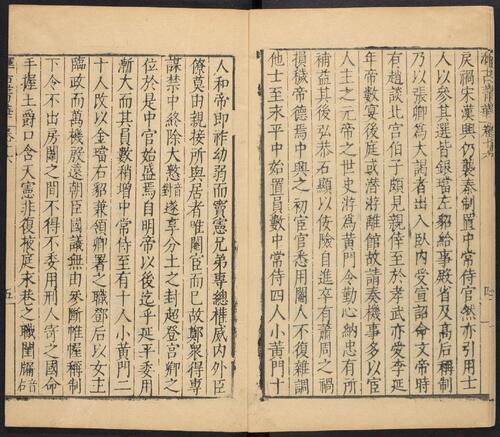 戾禍宋漢興仍襲秦制置中常侍官然亦引用士
人以參其選皆銀璫左貂給事殿省及高后稱制
乃以張卿為大謁者出入臥内受宣詔命文帝時
有趙談北宮伯子頗見親倖至於孝武亦愛李延
年帝數宴後庭或潛游離館故請奏機事多以宦
人主之元帝之世史游為黃門令勤心納忠有所
補益其後弘恭石顯以佞險自進卒有蕭周之禍
損穢帝德焉中興之初宦官悉用閹人不復雜調
他士至永平中始置員數中常侍四人小黃門十
人和帝即祚幼弱而竇憲兄弟專總權威内外臣
僚莫由親接所與居者唯閹臣而已故鄭衆得專
謀禁中終除大憝音對遂享分土之封超登宮卿之
位於是中官始盛焉自明帝以後迄乎延平委用
漸大而其員數稍增中常侍至有十人小黃門二
十人改以金璫右貂兼領卿署之職鄧后以女主
臨政而萬機殷遠朝臣國議無由參斷帷幄稱制
下令不出房闈之間不得不委用刑人寄之國命
手握王爵口含天憲非復掖庭永巷之職閨牖音右
五